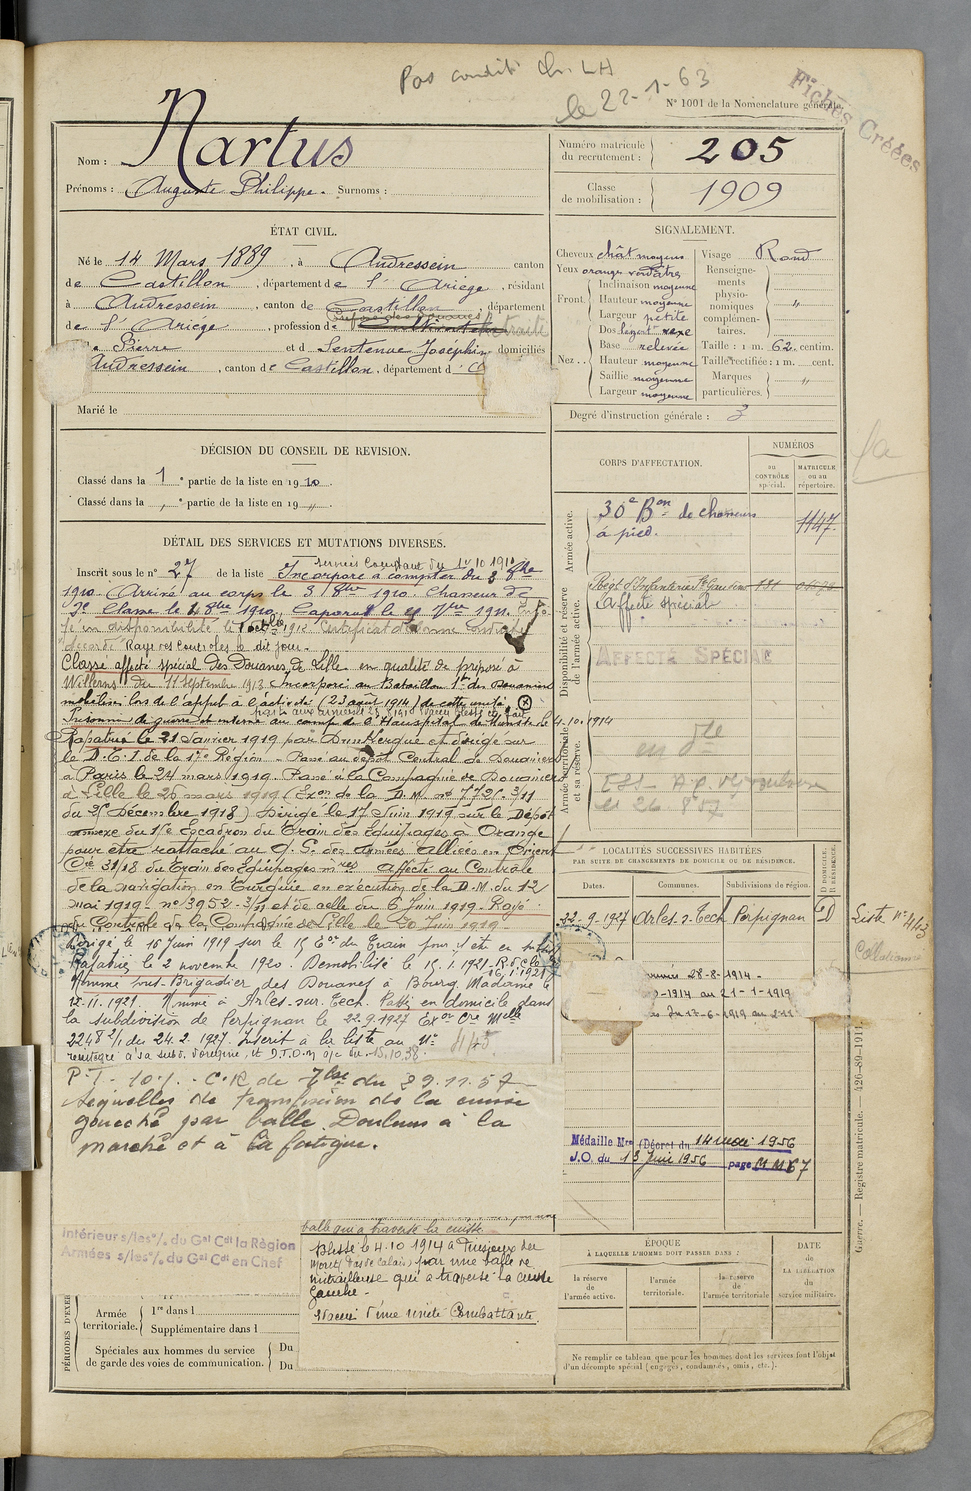 Pas condit. Ch. LH
le 22-1-63
Fiches Créées
N° 1001 de la Nomenclature générale.
Nom : Nartus
Prénoms : Auguste Philippe. Surnoms :
Numéro matricule du recrutement : 205
Classe de mobilisation : 1909
ÉTAT CIVIL.
Né le 14 Mars 1889, à Audressein canton
de Castillon, département de l'Ariège, résidant
à Audressein, canton de Castillon, département
de l'Ariège, profession de
Pierre et d Sentenac Joséphine domiciliés
Audressein, canton de Castillon, département d
Marié le
SIGNALEMENT.
Cheveux chât moyens
Yeux orangé verdâtre
Front. Inclinaison moyenne
Hauteur moyenne
Largeur petite
Nez.. Dos légert vexe
Base relevée
Hauteur moyenne
Saillie moyenne
Largeur moyenne
Visage Rond
Renseignements physionomiques complémentaires. "
Taille : 1 m. 62 centim.
Taille rectifiée : 1 m. cent.
Marques particulières. "
Degré d'instruction générale : 3
DÉCISION DU CONSEIL DE REVISION.
Classé dans la 1e partie de la liste en 1910.
Classé dans la " e partie de la liste en 19 ".
CORPS D'AFFECTATION.
NUMÉROS
AU CONTRÔLE spécial.
MATRICULE ou au répertoire.
Armée active.
30e Bon de chasseurs
à pied.
1147
Disponibilité et réserve de l'armée active.
Regt d'Infanterie St Gaudens
Affecté spécial
AFFECTÉ SPÉCIAL
Armée territoriale et sa réserve.
DÉTAIL DES SERVICES ET MUTATIONS DIVERSES.
Service Comptant du 1er 10 1910
Inscrit sous le n° 27 de la liste Incorporé à compter du 3 8bre
1910. Arrivé au corps le 3 8bre 1910. Chasseur de
2e Classe le 8bre 1910. Caporal le 7bre 1911.
en disponibilité le 1912 Certificat de bonne conduite
accordé Rayé des contrôles le dit jour.
Classé affecté spécial des Douanes de Lille en qualité de préposé à
Willems du 11 septembre 1913 Incorporé au Bataillon 1er des Douaniers
mobilisés lors de l'appel à l'activité (23 août 1914) de cette unité
Prisonnier de guerre et interné au camp de le 4.10.1914
Rapatrié le 21 Janvier 1919 par Dunkerque et dirigé sur
le D.T.I de la 1re Région - Passé au dépôt Central de Douaniers
à Paris le 24 mars 1919. Passé à la Compagnie de Douaniers
à Lille le 26 mars 1919 (Exon de la D.M. n° 7725 3/11
du 25 Décembre 1918) Dirigé le 17 Juin 1919 sur le Dépôt
annexe du 15e Escadron du Train des Equipages à Orange
pour être rattaché au Q. G. des armées alliées en Orient
Cie 31/18 du Train des Equipages mres affecté au Contrôle
de la navigation en Turquie en exécution de la D.M. du 12
mai 1919 n° 3952-3/11 et de celle du 6 Juin 1919. Rayé
du Contrôle de la Compagnie de Lille le 20 Juin 1919
Dirigé le 16 Juin 1919 sur le 15 Eon du Train pour y être en subsist
Rapatrié le 2 novembre 1920 Démobilisé le 15.1.1921
16.1.1921
Nommé sous-Brigadier des Douanes à Bourg Madame le
12.11.1921. Nommé à Arles-sur-Tech. Passé en domicile dans
la subdivision de Perpignan le 22.9.1927 Exon Cre Mlle
2248 2/1 du 24.2.1927. Inscrit à la liste au N° 81/45
réintégré à sa subd. d'origine, et D.T.O.M. a/c du 15.10.38.
P.I. 10% - C.R de du 29.11.57
Séquelles de transfixion de la cuisse
gauche par balle. Douleurs à la
marche et à la fatigue.
LOCALITÉS SUCCESSIVES HABITÉES
PAR SUITE DE CHANGEMENTS DE DOMICILE OU DE RÉSIDENCE.
Dates. Communes. Subdivisions de région. D DOMICILE. R RÉSIDENCE.
22-9-1927 Arles s. Tech Perpignan D
Liste n° 443
28-8-1914 -
-1914 au 21-1-1919
du 17-6-1919 au
Médaille Mre (Décret du 14 mai 1956
J.O. du 13 Juin 1956 page
Intérieurs s/les o/. du Gal Cdt la Région
Armées s/les o/. du Gal Cdt en Chef
balle qui a traversé la cuisse
Blessé le 4.10 1914 à
(Pas de Calais) par une balle de
mitrailleuse qui a traversé la cuisse
gauche.
d'une unité Combattante.
PÉRIODES D'EXER
Armée territoriale. 1re dans l
Supplémentaire dans l
Spéciales aux hommes du service de garde des voies de communication. Du
Du
ÉPOQUE
À LAQUELLE L'HOMME DOIT PASSER DANS :
la réserve de l'armée active.
l'armée territoriale.
la réserve de l'armée territoriale
DATE de LA LIBÉRATION du service militaire.
Ne remplir ce tableau que pour les hommes dont les services font l'objet
d'un décompte spécial (engagés, condamnés, omis, etc.).
Guerre. — Registre matricule. — 426-89-1911.